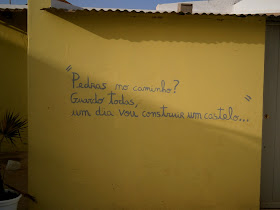 "Pedras no caminho?
Guardo todas,
um dia vou construir um castelo..."